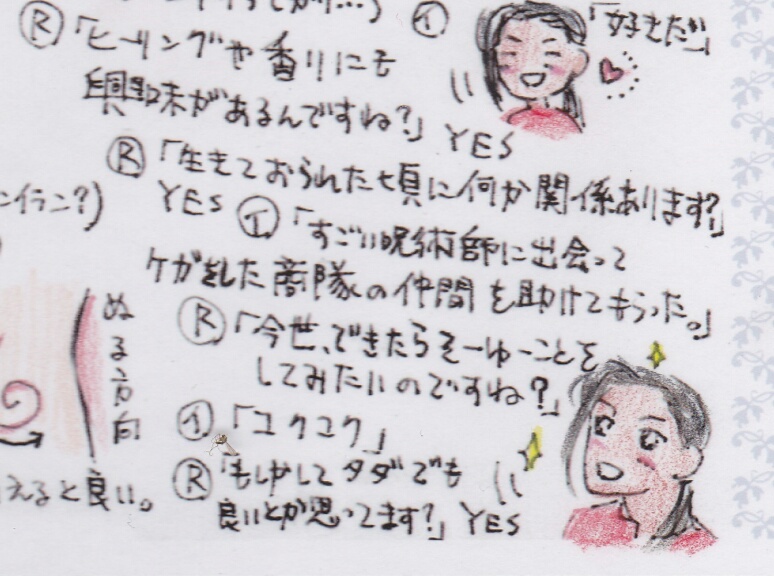 Ⓡ「ヒーリングや香りにも
興味があるんですね?」YES
Ⓘ「好きだ」
Ⓡ「生きておられた頃に何か関係あります?」
YES Ⓘ「すごい呪術師に出会って
ケガをした商隊の仲間を助けてもらった。」
Ⓡ「今世、できたらそーゆーことを
してみたいのですね?」
Ⓘ「コクコク」
Ⓡ「もしかしてタダでも
良いとか思ってます?」YES
ンイラン?)
ぬる方向
えると良い。